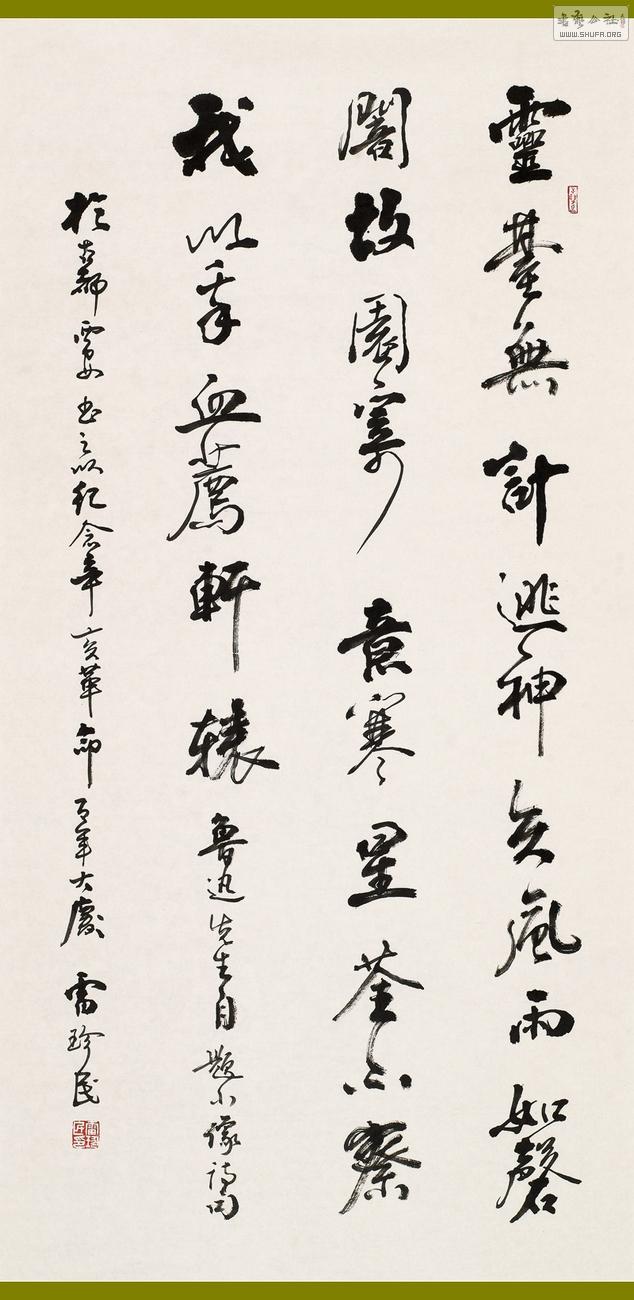 靈臺無計逃神矢風雨如磬
闇故園寄意寒星荃不察
我以我血薦軒轅 魯迅先生自題小像詩句
於古都西安書之以紀念辛亥革命百年大慶 雷珍民
書藝公社
WWW.SHUFA.ORG